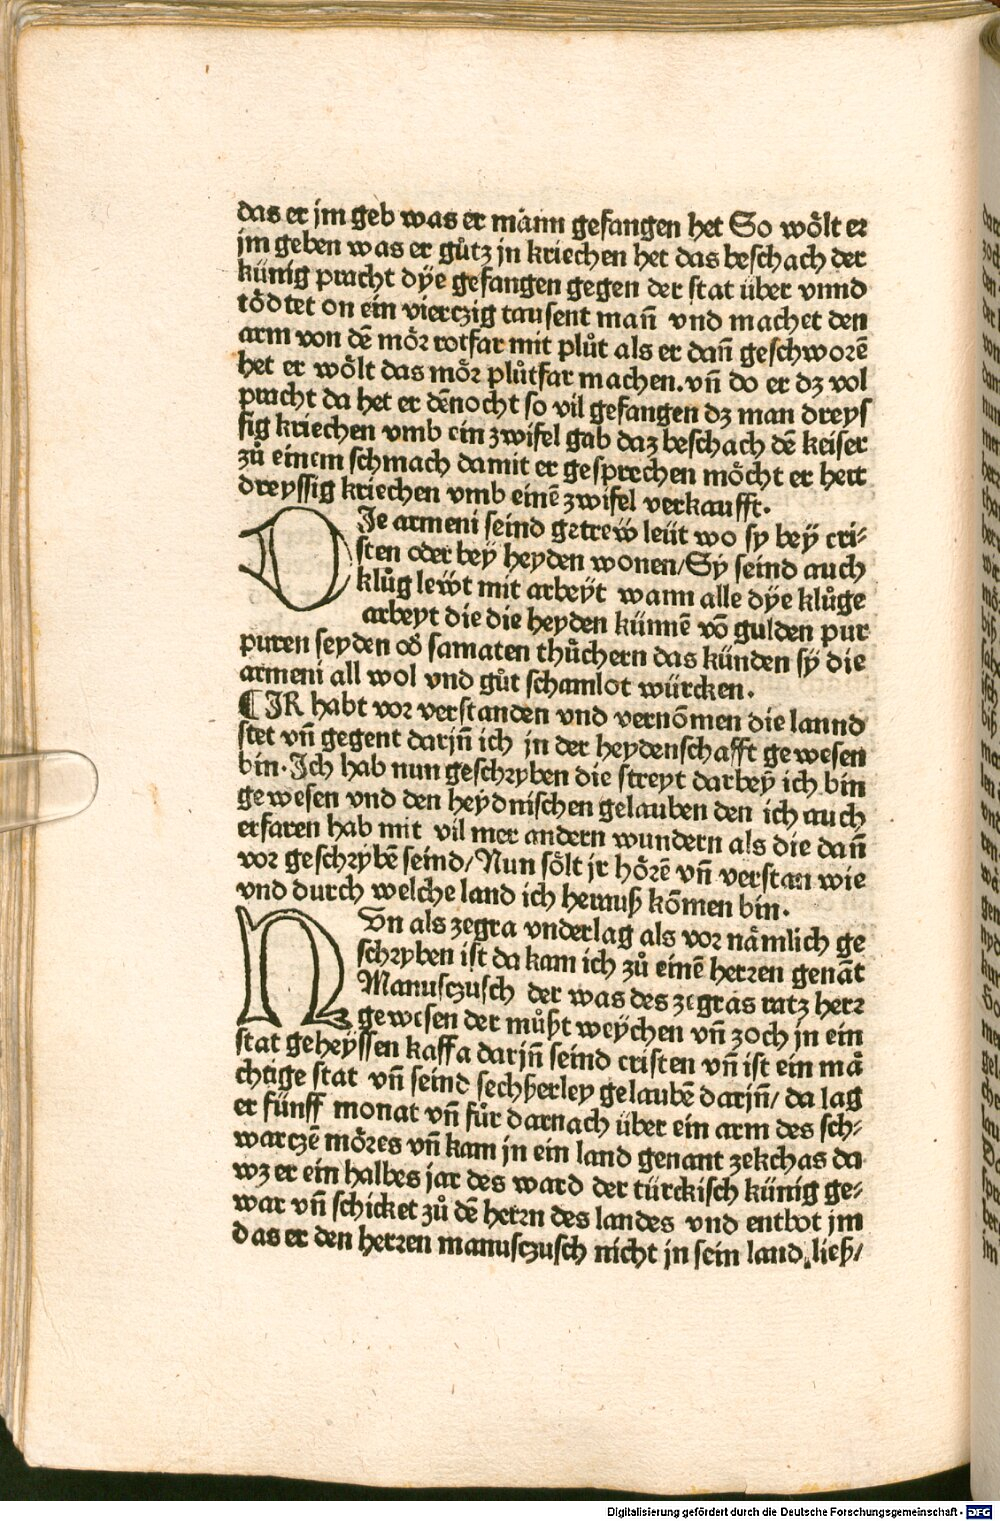 das er jm geb was er mann gefangen het So wölt er
jm geben was er gůtz jn kriechen het das beschach der
künig pracht dÿe gefangen gegen der stat über vnnd
tödtet on ein vierczig tausent man̄ vnd machet den
arm von dē mör rotfar mit plůt als er dan̄ geschworē
het er wölt das mör plůtfar machen. vn̄ do er dz vol
pracht da het er dēnocht so vil gefangen dz man dreys
sig kriechen vmb ein zwifel gab daz beschach dē keiser
zů einem schmach damit er gesprechen möcht er hett
dreyssig kriechen vmb einē zwifel verkaufft.
DJe armeni seind getrew̎ leüt wo sy bey̎ cri⸗
sten oder bey̎ heyden wonen/ Sÿ seind auch
klůg lew̎t mit arbeÿt wann alle dÿe klůge
arbeyt die die heyden künnē vō gulden pur
puren seyden oď samaten thůchern das künden sÿ die
armeni all wol vnd gůt schamlot würcken.
¶ JR habt vor verstanden vnd vernōmen die lannd
stet vn̄ gegent darjn̄ ich jn der heydenschafft gewesen
bin. Ich hab nun geschryben die streyt darbeÿ ich bin
gewesen vnd den heÿdnischen gelauben den ich auch
erfaren hab mit vil mer andern wundern als die dan̄
vor geschrybē seind/ Nun sölt jr hörē vn̄ verstan wie
vnd durch welche land ich herauß kōmen bin.
NVn als zegra vnderlag als vor nämlich ge
schryben ist da kam ich zů einē herren genāt
Manusczusch der was des zegras ratz herr
gewesen der můßt weÿchen vn̄ zoch jn ein
stat geheÿssen kaffa darjn̄ seind cristen vn̄ ist ein mä
chtige stat vn̄ seind sechßerley gelaubē darjn̄/ da lag
er fünff monat vn̄ fůr darnach über ein arm des sch⸗
warczē möres vn̄ kam jn ein land genant zekchas da
wz er ein halbes jar des ward der türckisch künig ge⸗
war vn̄ schicket zů dē herrn des landes vnd entbot jm
das er den herren manusczusch nicht jn sein land ließ/
Digitalisierung gefördert durch die Deutsche Forschungsgemeinschaft - DFG